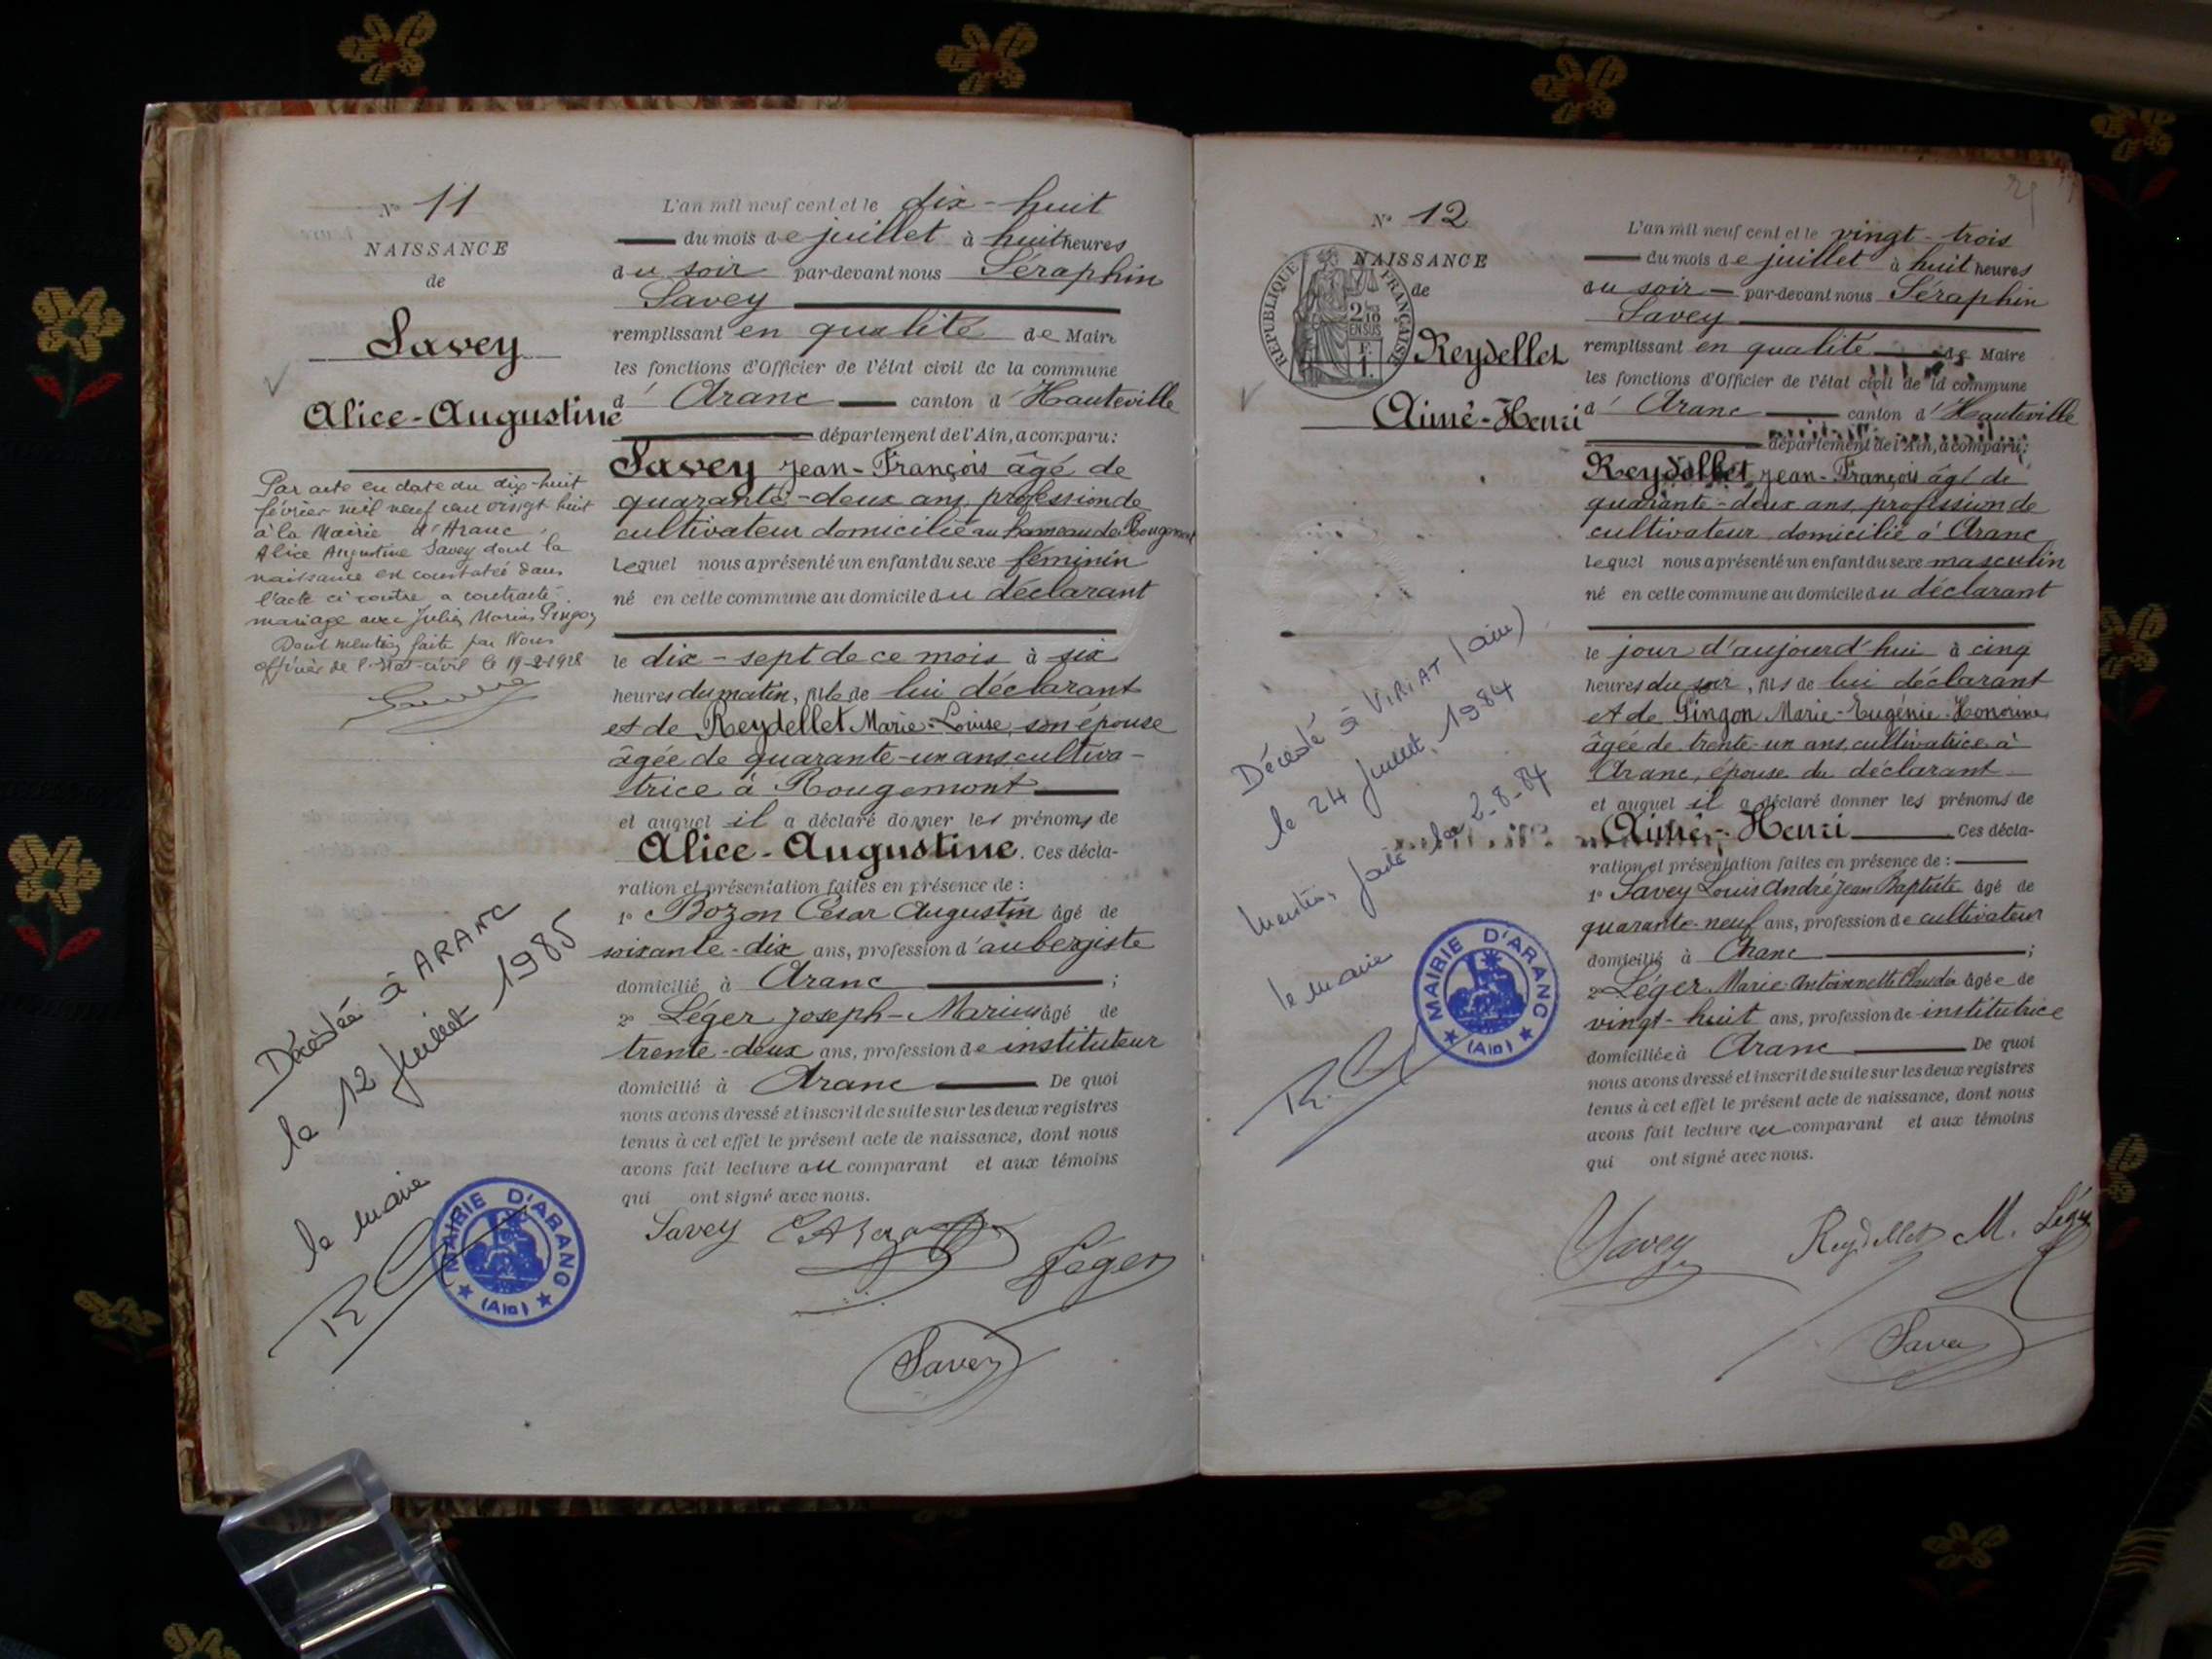 N° 11
NAISSANCE
de
Savey
Alice-Augustine
Par acte en date du dix-huit
février mil neuf cent vingt huit
à la Mairie d'Aranc
Alice Augustine Savey dont la
naissance est constatée dans
l'acte ci contre a contracté
mariage avec Julien Marius
Dont mention faite par Nous
officier de l'état-civil le 19-2-1928
Décédée à ARANC
le 12 Juillet 1985
le maire
MAIRIE D'ARANC
(Ain)
L'an mil neuf cent et le dix-huit
du mois de juillet à huit heures
du soir par-devant nous Séraphin
Savey
remplissant en qualité de Maire
les fonctions d'Officier de l'état civil de la commune
d'Aranc canton d'Hauteville
département de l'Ain, a comparu :
Savey Jean-François âgé de
quarante-deux ans, profession de
cultivateur domicilié au hameau de Rougemont
Lequel nous a présenté un enfant du sexe féminin
né en cette commune au domicile du déclarant
le dix-sept de ce mois à six
heures du matin, fille de lui déclarant
et de Reydellet Marie-Louise, son épouse
âgée de quarante-un ans cultiva-
trice à Rougemont
et auquel il a déclaré donner les prénoms de
Alice-Augustine. Ces décla-
ration et présentation faites en présence de :
1° Bozon César Augustin âgé de
soixante-dix ans, profession d'aubergiste
domicilié à Aranc ;
2° Léger Joseph-Marius âgé de
trente-deux ans, profession de instituteur
domicilié à Aranc De quoi
nous avons dressé et inscrit de suite sur les deux registres
tenus à cet effet le présent acte de naissance, dont nous
avons fait lecture au comparant et aux témoins
qui ont signé avec nous.
Savey
Léger
Savey
N° 12
NAISSANCE
de
REPUBLIQUE FRANÇAISE
2/10
EN SUS
Reydellet
Aimé-Henri
Décédé à VIRIAT (ain)
le 24 Juillet 1984
mention faite le 2-8-84
le maire
MAIRIE D'ARANC
(Ain)
L'an mil neuf cent et le vingt-trois
du mois de juillet à huit heures
du soir par-devant nous Séraphin
Savey
remplissant en qualité de Maire
les fonctions d'Officier de l'état civil de la commune
d'Aranc canton d'Hauteville
département de l'Ain, a comparu :
Reydellet Jean-François âgé de
quarante-deux ans, profession de
cultivateur domicilié à Aranc
Lequel nous a présenté un enfant du sexe masculin
né en cette commune au domicile du déclarant
le jour d'aujourd'hui à cinq
heures du soir, fils de lui déclarant
et de Gingon Marie-Eugénie-Honorine
âgée de trente-un ans, cultivatrice à
Aranc, épouse du déclarant
et auquel il a déclaré donner les prénoms de
Aimé-Henri Ces décla-
ration et présentation faites en présence de :
1° Savey Louis André Jean Baptiste âgé de
quarante-neuf ans, profession de cultivateur
domicilié à Aranc ;
2° Léger Marie-Antoinnette Claudia âgée de
vingt-huit ans, profession de institutrice
domiciliée à Aranc De quoi
nous avons dressé et inscrit de suite sur les deux registres
tenus à cet effet le présent acte de naissance, dont nous
avons fait lecture au comparant et aux témoins
qui ont signé avec nous.
Savey Reydellet M. Léger
Savey